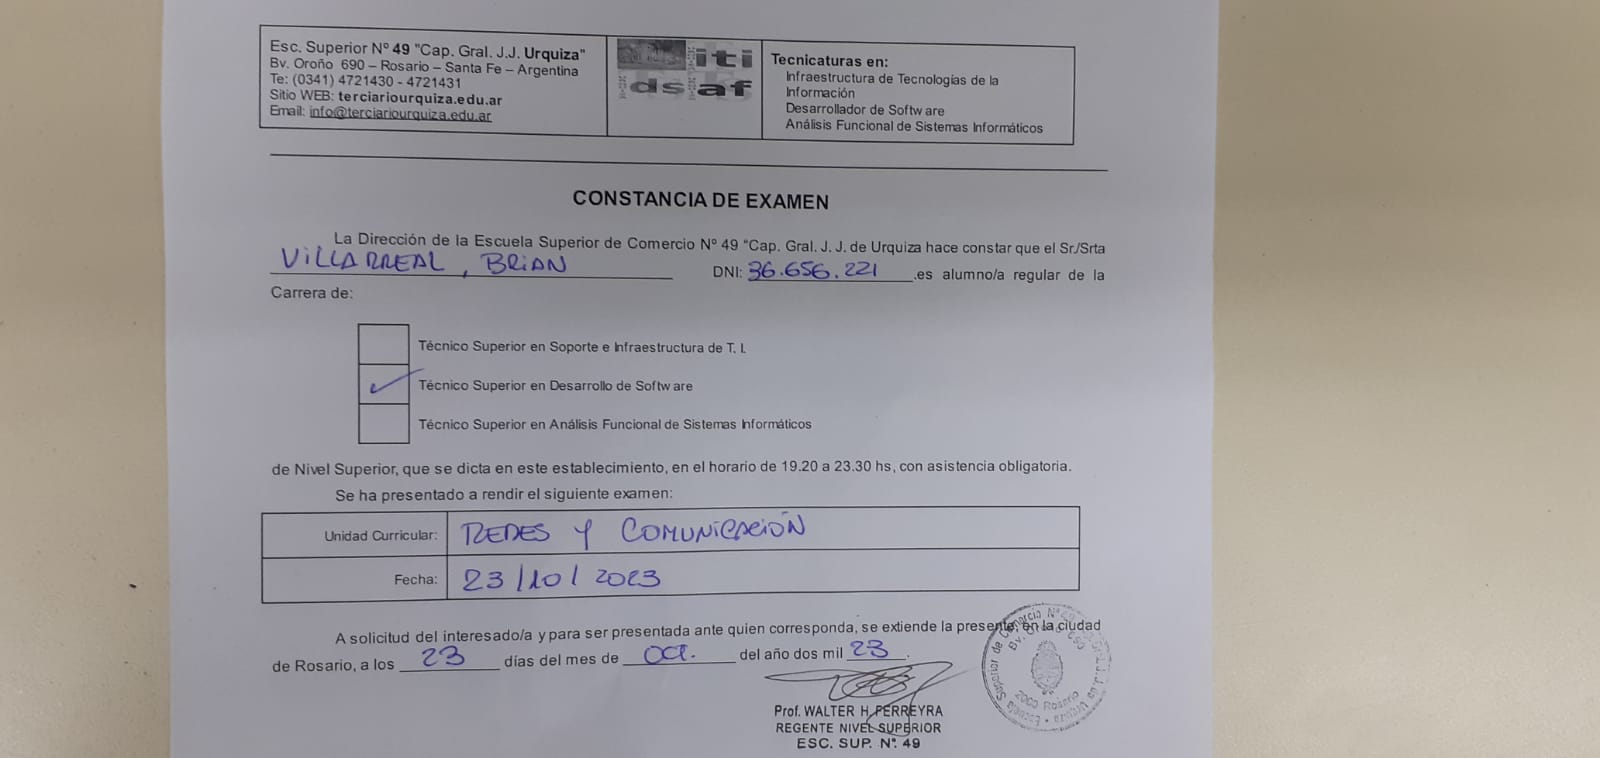 Esc. Superior Nº 49 "Cap. Gral. J.J. Urquiza"
Bv. Oroño 690 – Rosario – Santa Fe – Argentina
Te: (0341) 4721430 - 4721431
Sitio WEB: terciariourquiza.edu.ar
Email: info@terciariourquiza.edu.ar
iti
ds af
Tecnicaturas en:
Infraestructura de Tecnologías de la
Información
Desarrollador de Software
Análisis Funcional de Sistemas Informáticos
CONSTANCIA DE EXAMEN
La Dirección de la Escuela Superior de Comercio Nº 49 "Cap. Gral. J. J. de Urquiza hace constar que el Sr./Srta
VILLARREAL, BRIAN DNI: 36.656.221 .es alumno/a regular de la
Carrera de:
Técnico Superior en Soporte e Infraestructura de T. I.
Técnico Superior en Desarrollo de Software
Técnico Superior en Análisis Funcional de Sistemas Informáticos
de Nivel Superior, que se dicta en este establecimiento, en el horario de 19.20 a 23.30 hs, con asistencia obligatoria.
Se ha presentado a rendir el siguiente examen:
Unidad Curricular: REDES Y COMUNICACIÓN
Fecha: 23/10/2023
A solicitud del interesado/a y para ser presentada ante quien corresponda, se extiende la presente, en la ciudad
de Rosario, a los 23 días del mes de OCT. del año dos mil 23.
Prof. WALTER H. FERREYRA
REGENTE NIVEL SUPERIOR
ESC. SUP. Nº. 49
Escuela Superior de Comercio Nº 49
2000 Rosario